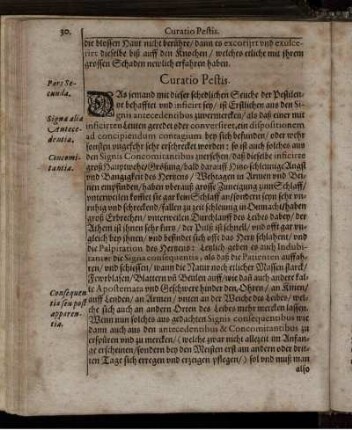 30. Curatio Pestis.
die blossen Haut nicht berühre / dann es excoriirt vnd exulce-
rirt dieselbe biß auff den Knochen / welches etliche mit jhrem
grossen Schaden newlich erfahren haben.
Curatio Pestis.
Pars Se-
cunda.
DAs jemand mit dieser schedlichen Seuche der Pestilen-
tz behafftet vnd inficirt sey / ist Erstlichen aus den Si-
gnis antecedentibus zuvermercken / als daß einer mit
Signa alia
Antece-
dentia.
inficirten Leuten geredet oder conversiret, ein dispositionem
ad concipiendum contagium bey sich befunden / oder wehr
sonsten vngefehr sehr erschrecket worden: so ist auch solches aus
Concomi-
tantia.
den Signis Concomitantibus zuersehen / daß dieselbe inficirte
groß Hauptwehe / Frösung / bald darauff Hitz schleunig Angst
vnd Bangigkeit des Hertzens / Wehtagen in Armen vnd Bei-
nen empfinden / haben vber auß grosse Zuneigung zum Schlaff /
vnterweilen kompt sie gar kein Schlaff an / sondern seyn sehr vn-
ruhig vnd schreckend / fallen zu zeit schleunig in Onmacht / haben
groß Erbrechen / vnterweilen Durchlauff des Leibes dabey / der
Athem ist jhnen sehr kurtz / der Pulß ist schnell / vnd offt gar vn-
gleich bey jhnen / vnd befindet sich offt das Hertz schladernd / vnd
die Palpiration des Hertzens: Letzlich geben es auch Indubi-
tanter die Signa consequentia, als daß die Patienten auffah-
Consequen-
tia seu post
apparen-
tia.
ren / vnd schiessen / wann die Natur noch etlicher Massen starck /
Fewrblasen / Blattern vñ Beulen auff / wie daß auch andere kal-
te Apostemata vnd Geschwere hinder den Ohren / an Kinen /
auff Lenden / an Armen / vnten an der Weiche des Leibes / wel-
che sich auch an andern Orten des Leibes mehr mercken lassen.
Wenn nun solches aus gedachten Signis consequentibus wie
dann auch aus den antecedentibus & Concomitantibus zu
erspüren vnd zu mercken / (welche zwar nicht allezeit im Anfan-
ge erscheinen / sondern bey den Meisten erst am andern oder drit-
ten Tage sich erregen vnd erzeigen pflegen /) so l vnd muß man
also